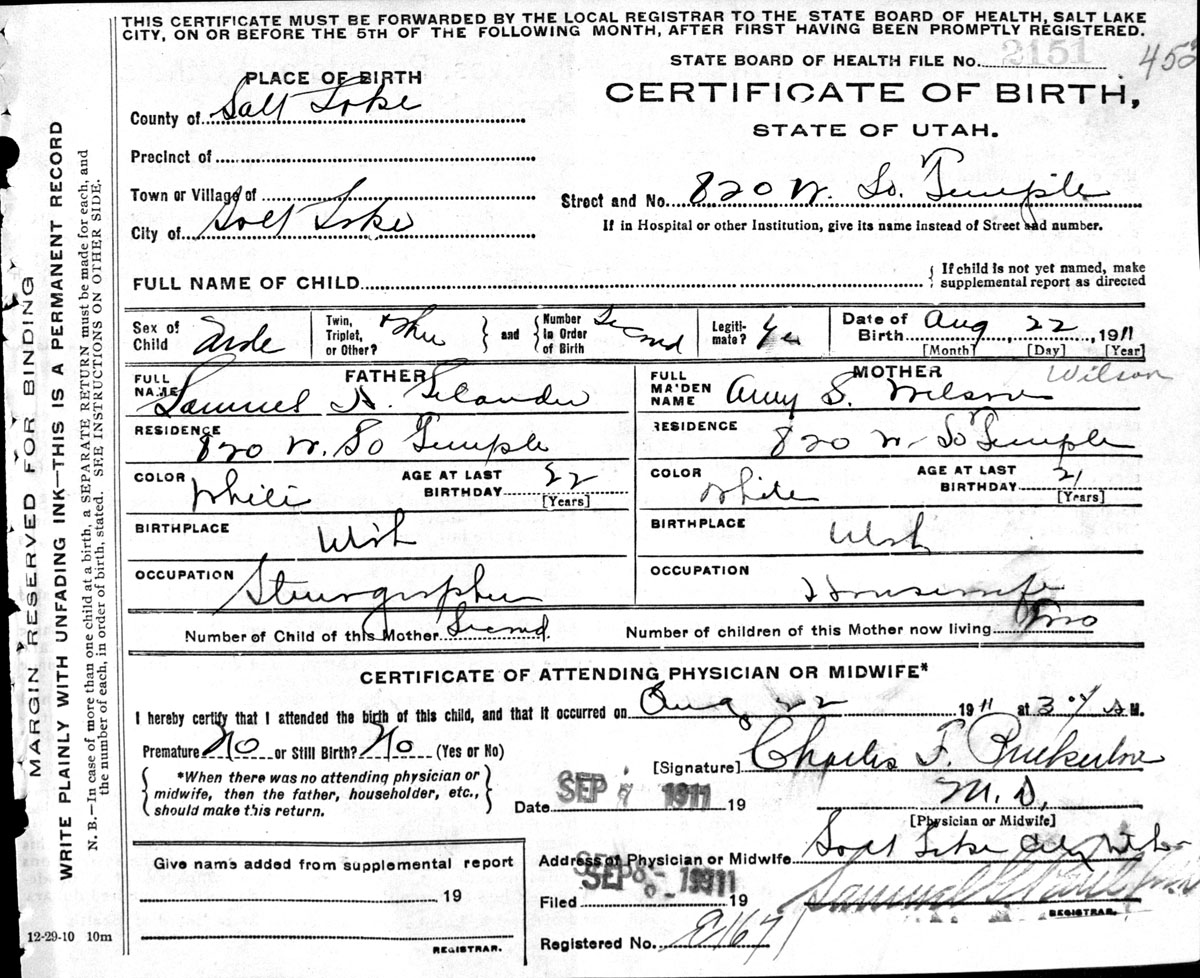 THIS CERTIFICATE MUST BE FORWARDED BY THE LOCAL REGISTRAR TO THE STATE BOARD OF HEALTH, SALT LAKE
CITY, ON OR BEFORE THE 5TH OF THE FOLLOWING MONTH, AFTER FIRST HAVING BEEN PROMPTLY REGISTERED.
STATE BOARD OF HEALTH FILE NO. 2151
CERTIFICATE OF BIRTH,
STATE OF UTAH.
PLACE OF BIRTH
County of Salt Lake
Precinct of
Town or Village of
City of Salt Lake
Street and No. 820 W. So. Temple
If in Hospital or other Institution, give its name instead of Street and number.
FULL NAME OF CHILD
{ If child is not yet named, make
supplemental report as directed
Sex of
Child
Twin,
Triplet,
or Other?
} and {
Number
in Order
of Birth
Second
Legiti-
mate? Yes
Date of
Birth Aug 22, 1911
[Month] [Day] [Year]
FATHER
FULL
NAME Samuel
RESIDENCE
820 W. So Temple
COLOR White
AGE AT LAST
BIRTHDAY 22
[Years]
BIRTHPLACE
Utah
OCCUPATION
Stenographer
MOTHER Wilson
FULL
MAIDEN
NAME Amy S. Wilson
RESIDENCE
820 W. So Temple
COLOR White
AGE AT LAST
BIRTHDAY 21
[Years]
BIRTHPLACE
Utah
OCCUPATION
Housewife
Number of Child of this Mother Second
Number of children of this Mother now living Two
CERTIFICATE OF ATTENDING PHYSICIAN OR MIDWIFE*
I hereby certify that I attended the birth of this child, and that it occurred on Aug 22 1911 at M.
Premature No or Still Birth? No (Yes or No)
{ *When there was no attending physician or
midwife, then the father, householder, etc.,
should make this return. }
[Signature] Charles F.
M.D.
[Physician or Midwife]
Date SEP 7 1911 19
Address of Physician or Midwife Salt Lake City Utah
Filed SEP 8 1911 19
REGISTRAR.
Registered No.
Give name added from supplemental report
19
REGISTRAR.
12-29-10 10m
MARGIN RESERVED FOR BINDING
WRITE PLAINLY WITH UNFADING INK—THIS IS A PERMANENT RECORD
N. B.—In case of more than one child at a birth, a SEPARATE RETURN must be made for each, and
the number of each, in order of birth, stated. SEE INSTRUCTIONS ON OTHER SIDE.